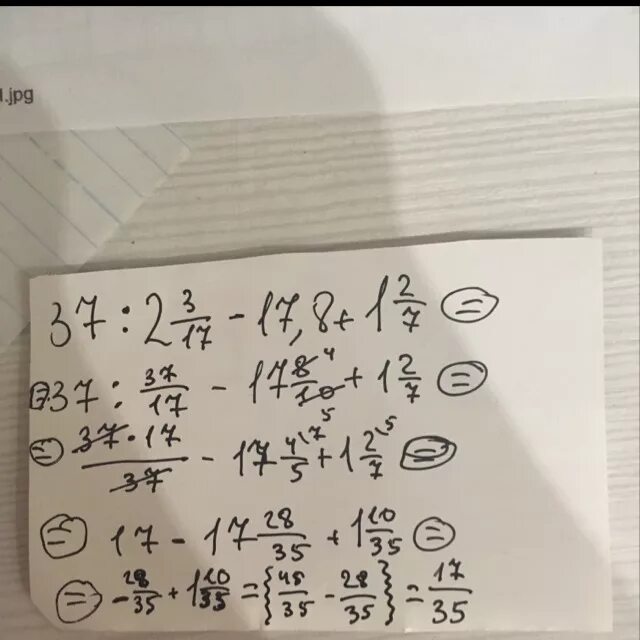 1.jpg
37 : 2 3/17 - 17,8 + 1 2/7 =
= 37 : 37/17 - 17 8/10 + 1 2/7 =
4
5
= 37·17/37 - 17 4\7/5 + 1 2\5/7 =
= 17 - 17 28/35 + 1 10/35 =
= -28/35 + 1 10/35 = {45/35 - 28/35} = 17/35